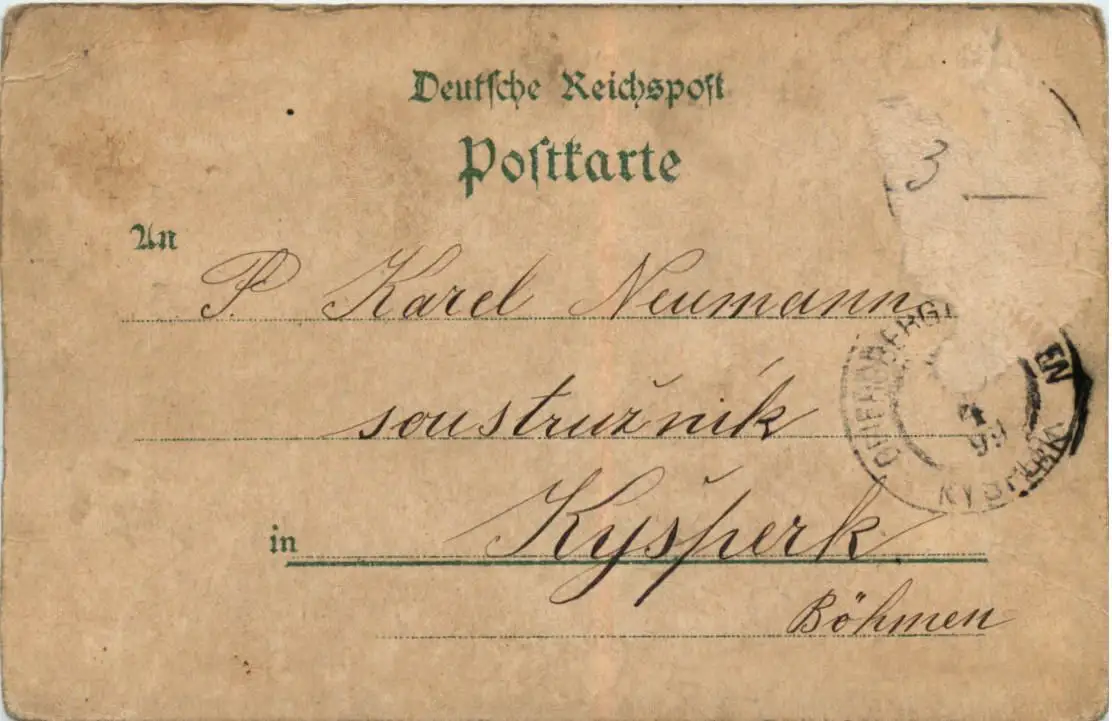 Deutsche Reichspost
Postkarte
3
An
P. Karel Neumann
soustružník
in Kyšperk
Böhmen
GEIERSBERG
EN
4
99
KYŠPERK